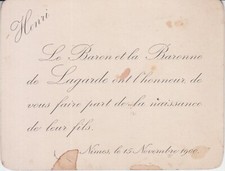 Henri
Le Baron et la Baronne
de Lagarde ont l'honneur de
vous faire part de la naissance
de leur fils.
Nîmes, le 15 Novembre